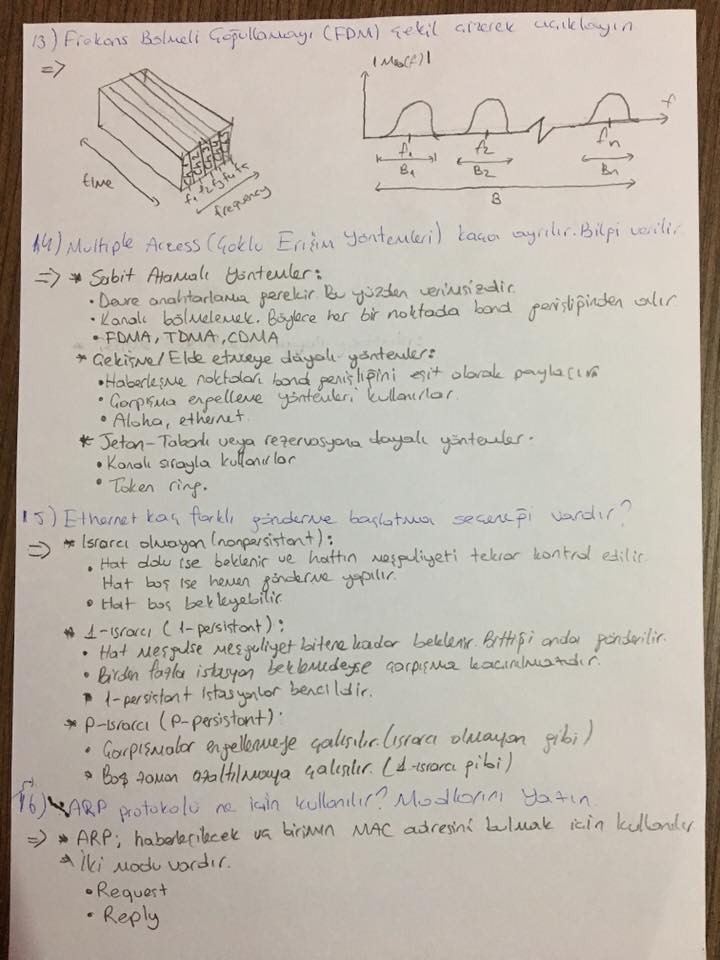 13) Frekans Bölmeli Çoğullamayı (FDM) şekil çizerek açıklayın
=>
time
f1 f2 f3 f4 f5
frequency
|M (f)|
f
f1 f2 fn
B1 B2 Bn
B
14) Multiple Access (Çoklu Erişim Yöntemleri) kaça ayrılır. Bilgi verilir
=> * Sabit Atamalı Yöntemler:
• Devre anahtarlama gerekir Bu yüzden verimsizdir.
• Kanalı bölmelemek. Böylece her bir noktada band genişliğinden alır
• FDMA, TDMA, CDMA
* Çekişme/Elde etmeye dayalı yöntemler:
• Haberleşme noktaları band genişliğini eşit olarak paylaşır
• Çarpışma engelleme yöntemleri kullanırlar.
• Aloha, ethernet.
* Jeton-Tabanlı veya rezervasyona dayalı yöntemler.
• Kanalı sırayla kullanırlar
• Token ring.
15) Ethernet kaç farklı gönderme başlatma seçeneği vardır?
=> * Israrcı olmayan (nonpersistant):
• Hat dolu ise beklenir ve hattın meşguliyeti tekrar kontrol edilir.
Hat boş ise hemen gönderme yapılır.
• Hat boş bekleyebilir.
* 1-ısrarcı (1-persistant):
• Hat meşgulse meşguliyet bitene kadar beklenir. Bittiği anda gönderilir.
• Birden fazla istasyon beklemedeyse çarpışma kaçınılmazdır.
• 1-persistant istasyonlar bencildir.
* P-ısrarcı (P-persistant):
• Çarpışmalar engellemeye çalışılır. (ısrarcı olmayan gibi)
• Boş zaman azaltılmaya çalışılır. (1-ısrarcı gibi)
16) ARP protokolü ne için kullanılır? Modlarını Yazın.
=> * ARP; haberleşilecek uç birimin MAC adresini bulmak için kullanılır
* İki modu vardır.
• Request
• Reply